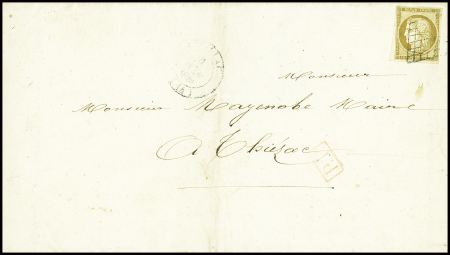 Monsieur
Monsieur Mayenobe Maire
A Thiézac
PP